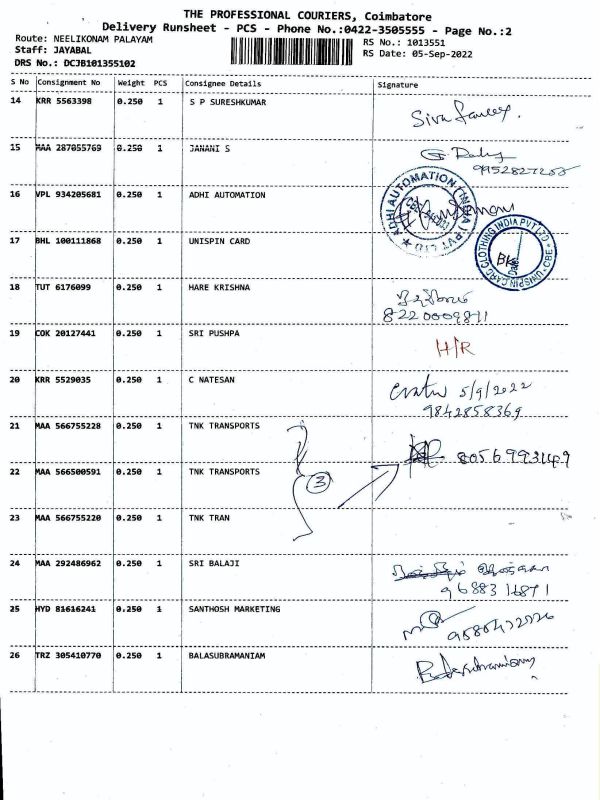 THE PROFESSIONAL COURIERS, Coimbatore
Delivery Runsheet - PCS - Phone No.:0422-3505555 - Page No.:2
Route: NEELIKONAM PALAYAM
RS No.: 1013551
Staff: JAYABAL
RS Date: 05-Sep-2022
DRS No.: DCJB101355102
S No Consignment No Weight PCS Consignee Details Signature
14 KRR 5563398 0.250 1 S P SURESHKUMAR
15 MAA 287055769 0.250 1 JANANI S
16 VPL 934205681 0.250 1 ADHI AUTOMATION
ADHI AUTOMATION (INDIA) PVT LTD
17 BHL 100111868 0.250 1 UNISPIN CARD
UNISPIN CARD CLOTHING INDIA PVT LTD CBE
18 TUT 6176099 0.250 1 HARE KRISHNA
8220009811
19 COK 20127441 0.250 1 SRI PUSHPA H/R
20 KRR 5529035 0.250 1 C NATESAN 5/9/2022
9842858369
21 MAA 566755228 0.250 1 TNK TRANSPORTS
8056993149
22 MAA 566500591 0.250 1 TNK TRANSPORTS 3
23 MAA 566755220 0.250 1 TNK TRAN
24 MAA 292486962 0.250 1 SRI BALAJI
9688316871
25 HYD 81616241 0.250 1 SANTHOSH MARKETING
26 TRZ 305410770 0.250 1 BALASUBRAMANIAM